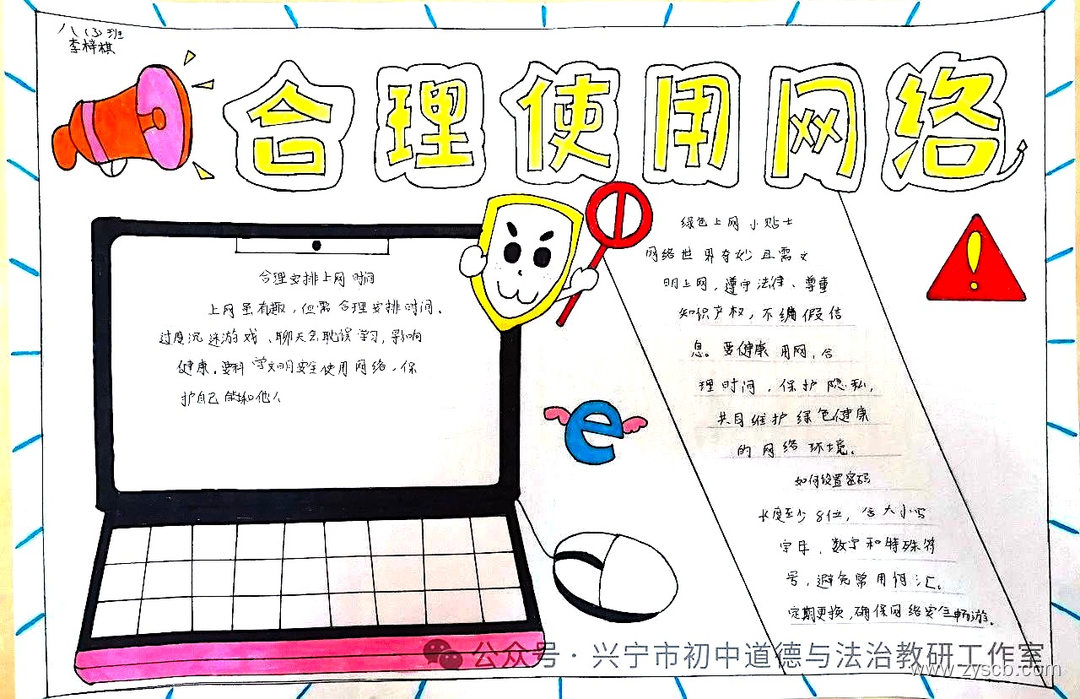 八(3)班
李梓棋
合理使用网络
合理安排上网时间
上网虽有趣，但需合理安排时间。
过度沉迷游戏、聊天会耽误学习，影响
健康。要 学文明安全使用网络，保
护自己 和他人
e
绿色上网小贴士
网络世界奇妙且需文
明上网，遵守法律、尊重
知识产权，不编假信
息。要健康用网，合
理时间，保护隐私，
共同维护绿色健康
的网络环境。
如何设置密码
长度至少8位，含大小写
字母，数字和特殊符
号，避免常用词汇。
定期更换，确保网络安全畅游。
公众号·兴宁市初中道德与法治教研工作室
www.zyscb.com